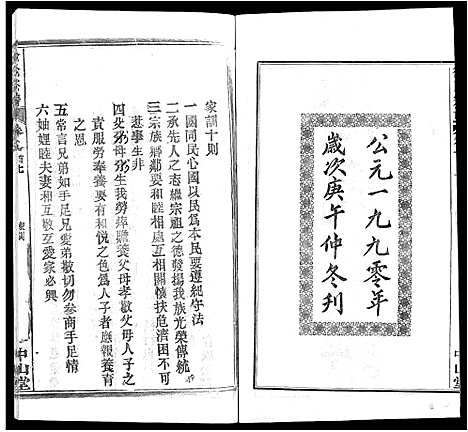 公元一九九零年
歲次庚午仲冬刋
中山堂
家訓十則
一國同民心國以民爲本民要遵紀守法
二承先人之志繼宗祖之德發揚我族光榮傳統
三宗族鄉鄰要和睦相處互相關懷扶危濟困不可
惹事生非
四父母生我勞瘁贍養父母孝敬父母人子之
責服勞奉養要有和悅之色爲人子者應報養育
之恩
五常言兄弟如手足兄愛弟敬切勿參商手足情
六妯娌睦夫妻和互敬互愛家必興
卷首
家訓
中山堂